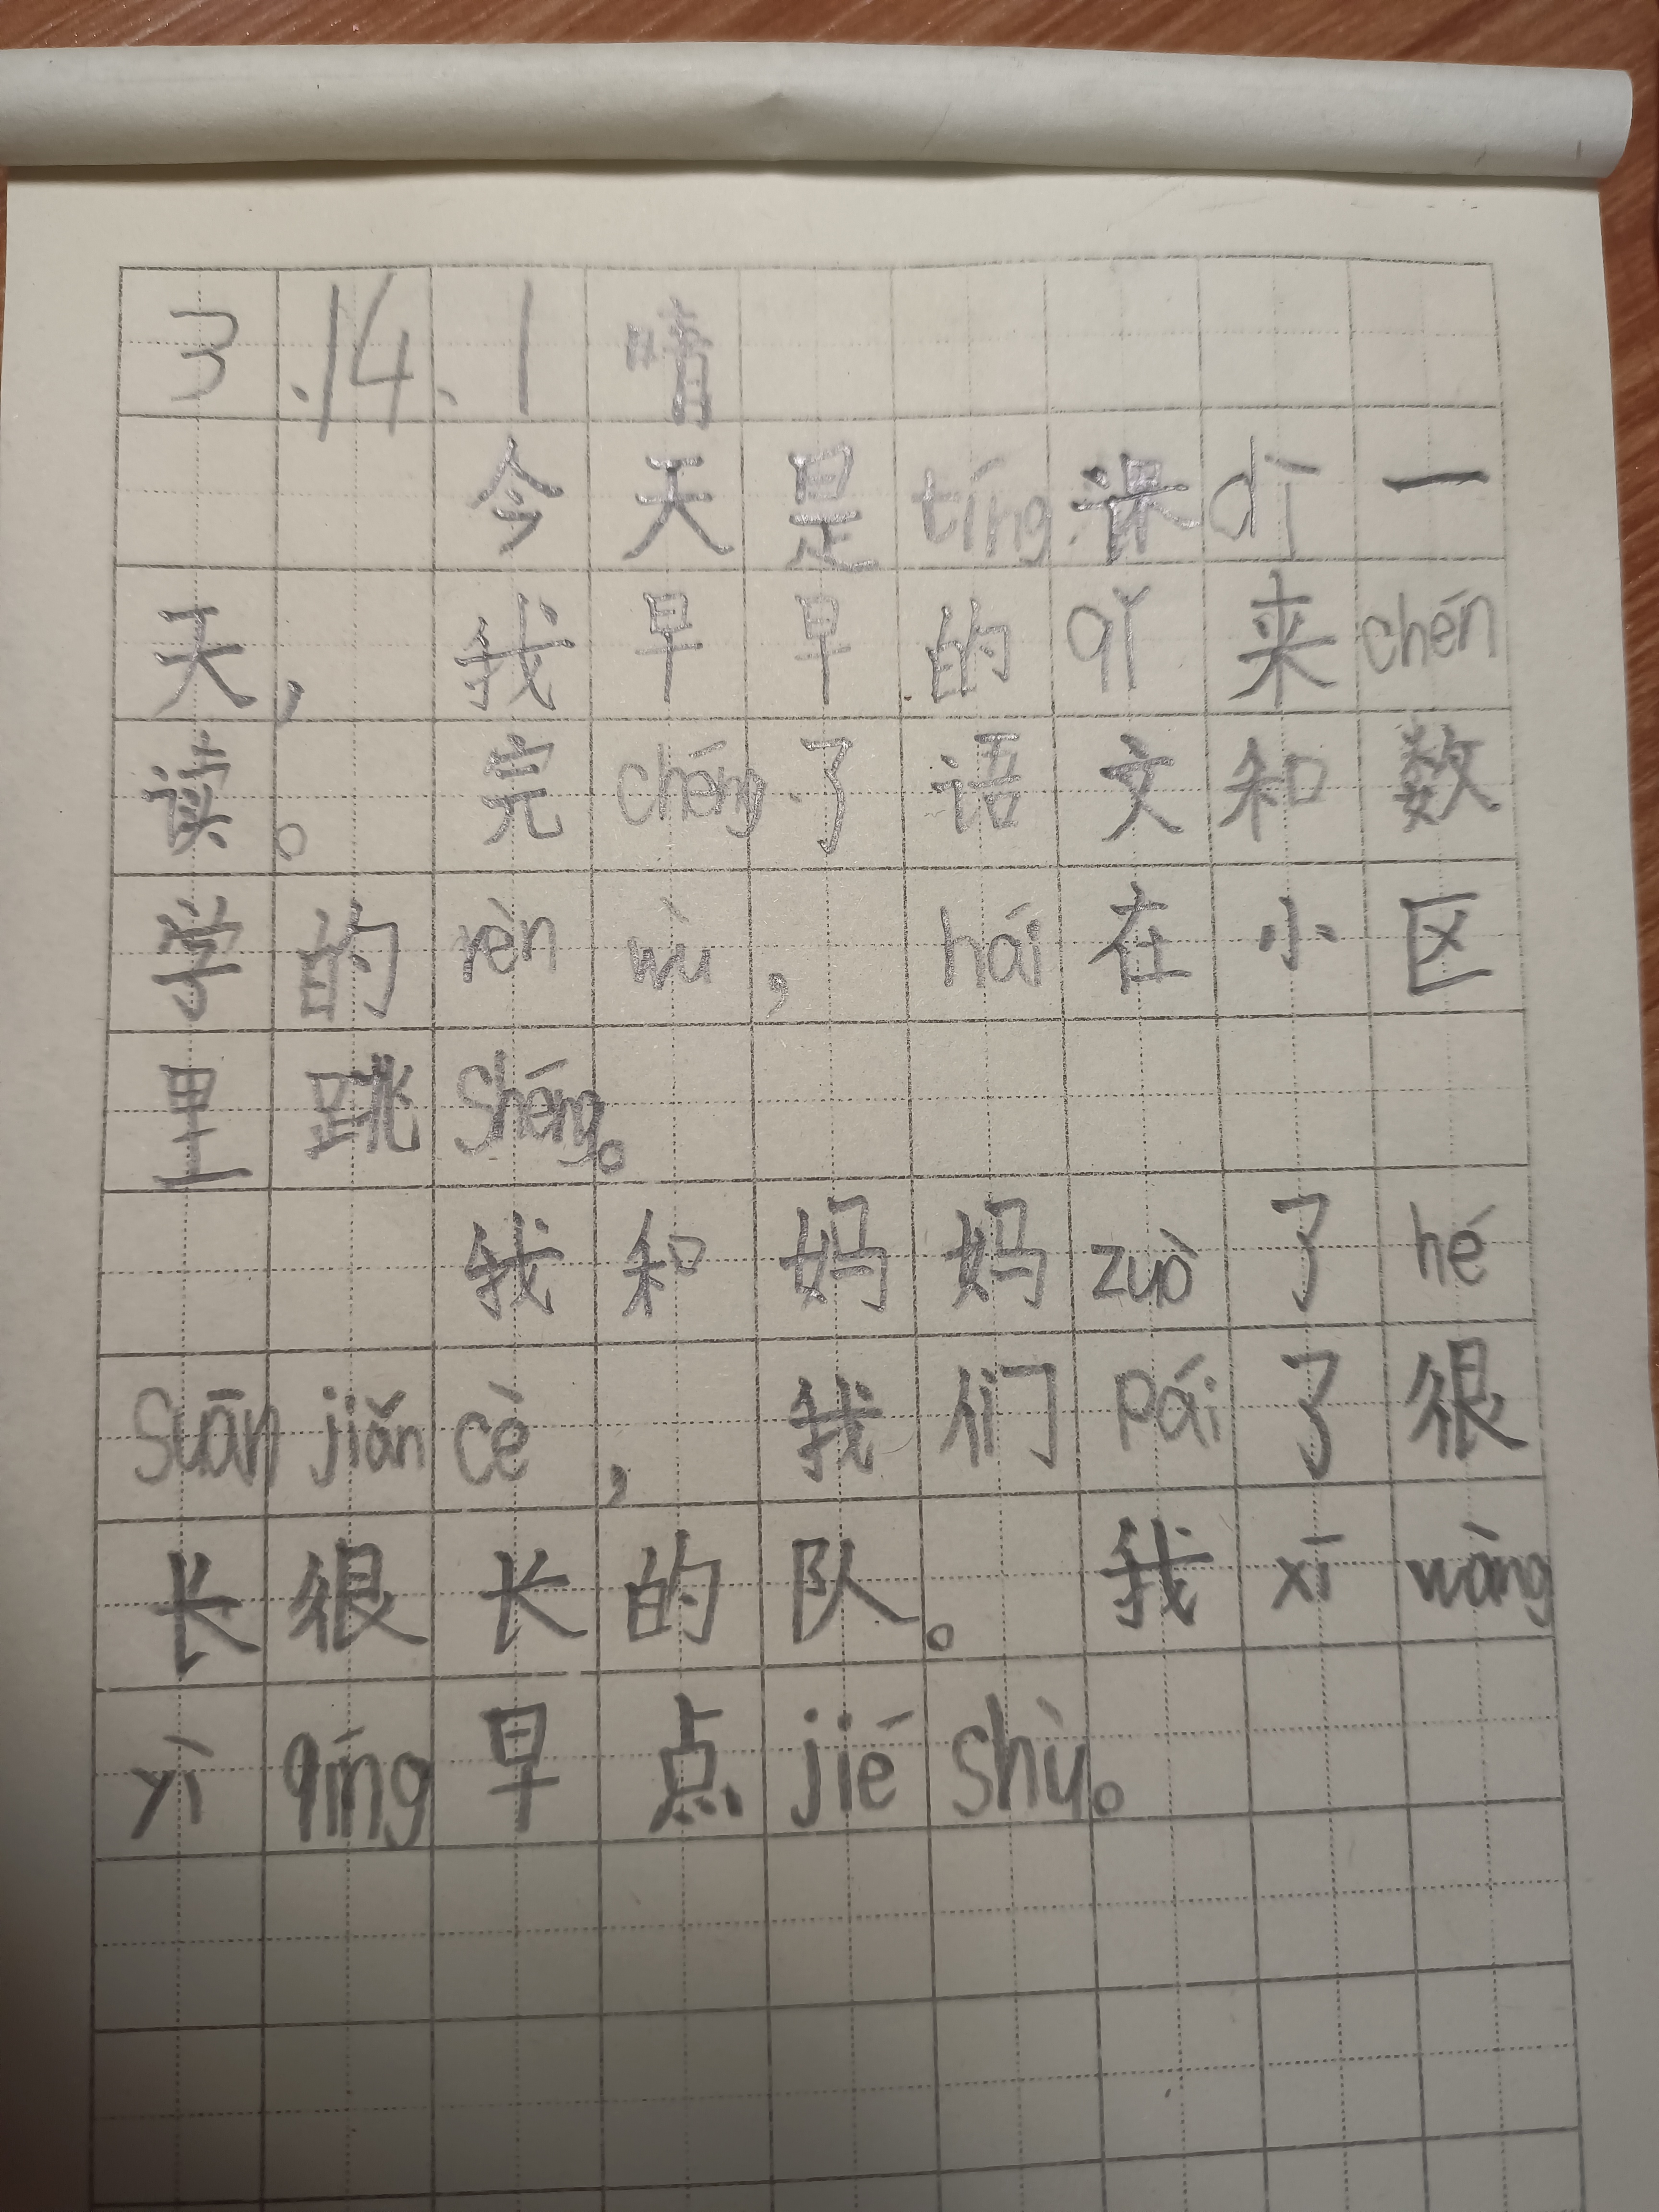 3.14.1 晴
今天是tíng课dì一
天，我早早的qǐ来chén
读。完chéng了语文和数
学的rèn wù，hái在小区
里跳shéng。
我和妈妈zuò了hé
suān jiǎn cè，我们pái了很
长很长的队。我xī wàng
yì qíng早点jié shù。